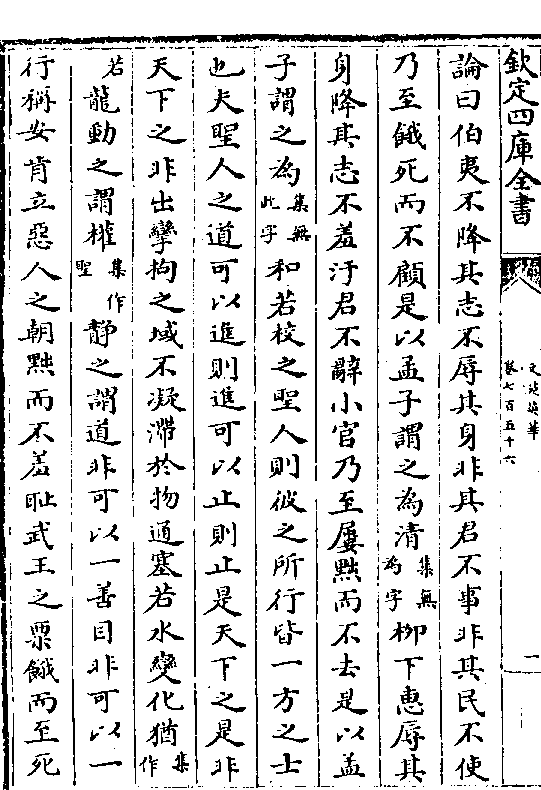 欽定四庫全書
文苑英華
卷七百五十六
一
論曰伯夷不降其志不辱其身非其君不事非其民不使
乃至餓死而不顧是以孟子謂之為清集無為字柳下惠辱其
身降其志不羞汙君不辭小官乃至屢黜而不去是以孟
子謂之為集無此字和若校之聖人則彼之所行皆一方之士
也夫聖人之道可以進則進可以止則止是天下之是非
天下之非出孿拘之域不凝滯於物通塞若水變化猶集作
若龍動之謂權集作聖靜之謂道非可以一善目非可以一
行稱安肯立惡人之朝黜而不羞恥武王之粟餓而至死